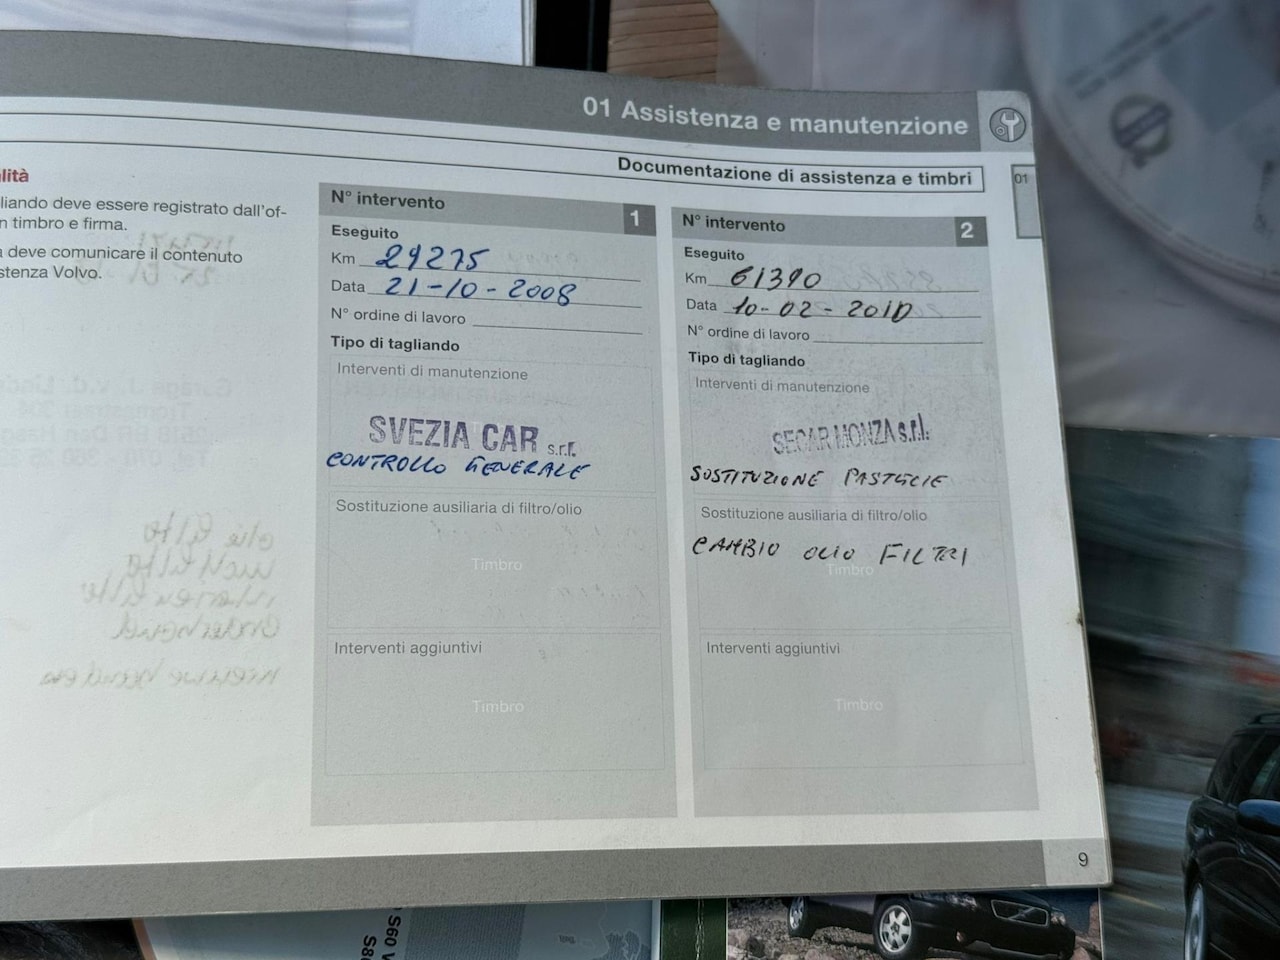 01 Assistenza e manutenzione
Documentazione di assistenza e timbri
01
lità
liando deve essere registrato dall'of-
n timbro e firma.
a deve comunicare il contenuto
stenza Volvo.
N° intervento
1
Eseguito
Km 29275
Data 21-10-2008
N° ordine di lavoro
Tipo di tagliando
Interventi di manutenzione
SVEZIA CAR s.r.l.
CONTROLLO GENERALE
Sostituzione ausiliaria di filtro/olio
Timbro
Interventi aggiuntivi
Timbro
N° intervento
2
Eseguito
Km 61390
Data 10-02-2010
N° ordine di lavoro
Tipo di tagliando
Interventi di manutenzione
SECAR MONZA s.r.l.
SOSTITUZIONE PASTIGLIE
Sostituzione ausiliaria di filtro/olio
CAMBIO OLIO FILTRI
Timbro
Interventi aggiuntivi
Timbro
9
S60